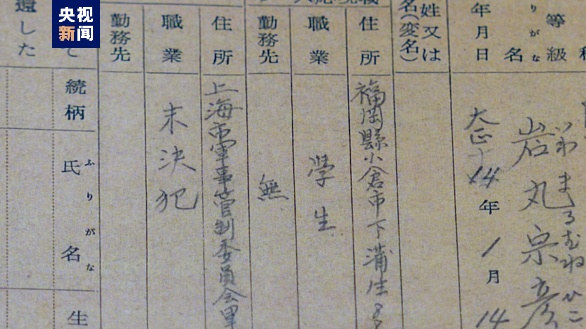 央视新闻
等級
りがな
名
いわまるむねひこ
岩丸宗彦
年月日
大正14年1月14
姓又は
名(変名)
住所
福岡縣小倉市下蒲生8
職業
學生
勤務先
無
住所
上海市軍事管制委員会
職業
未決犯
勤務先
て
続柄
ふりがな
氏名
生
還した